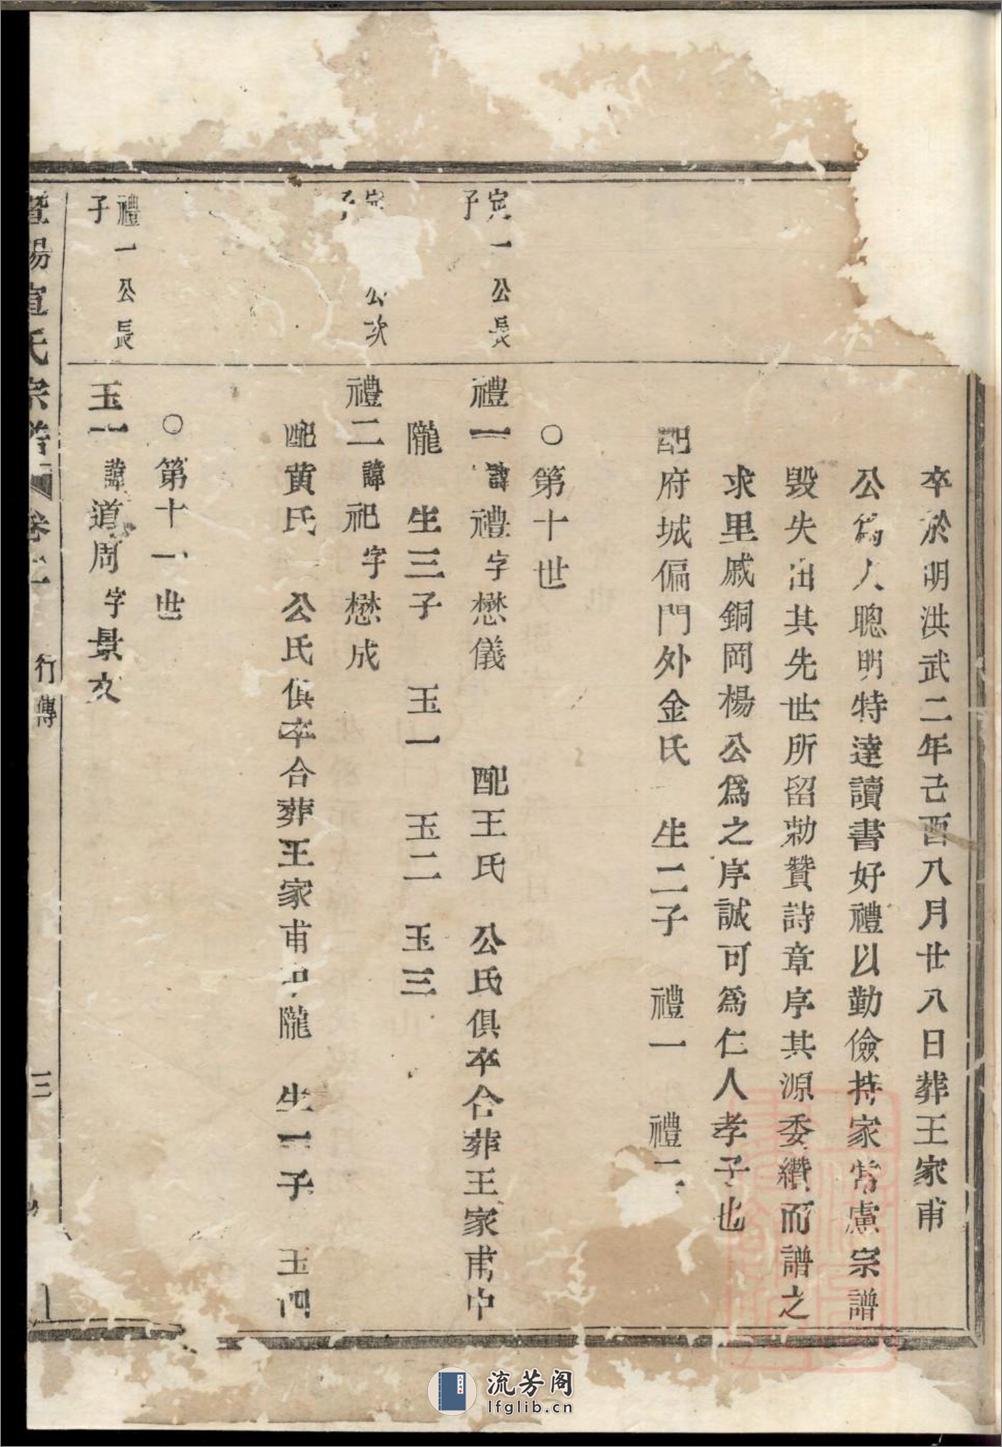 卒於明洪武二年己酉八月廿八日葬王家甫
公爲人聰明特達讀書好禮以勤儉持家常慮宗譜
毀失由其先世所留勅贊詩章序其源委纘而譜之
求里戚銅岡楊公爲之序誠可爲仁人孝子也
配府城偏門外金氏 生二子 禮一 禮二
〇第十世
完一公長子
禮一諱禮字懋儀 配王氏 公氏俱卒合葬王家甫中
隴 生三子 玉一 玉二 玉三
公次子
禮二諱祀字懋成
配黃氏 公氏俱卒合葬王家甫中隴 生一子 玉四
〇第十一世
禮一公長子
玉一諱道周字景文
暨陽宣氏宗譜 卷二 行傳 三
流芳阁
lfglib.cn